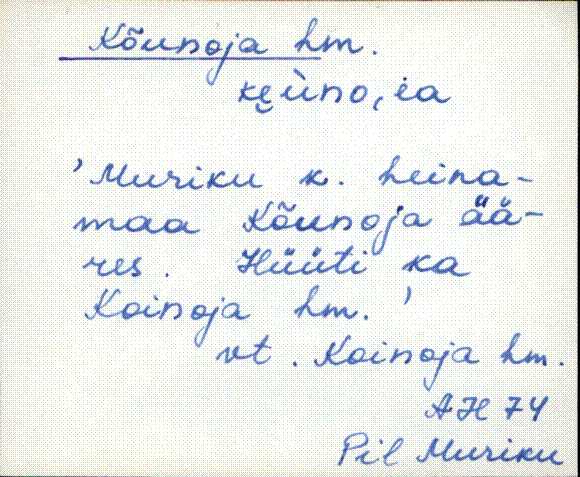 Kõunoja hm.
kęùno,ia
'Muriku k. heina-
maa Kõunoja ää-
res. Hüüti ka
Koinoja hm.'
vt. Koinoja hm.
AH 74
Pil Muriku